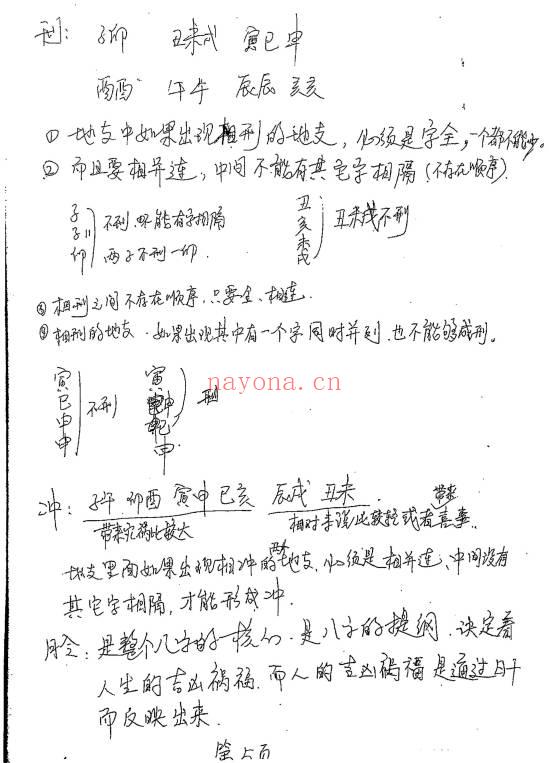 刑：子卯 丑未戌 寅巳申
酉酉 午午 辰辰 亥亥
① 地支中如果出现相刑的地支，必须是字全，一个都不能少。
② 而且要相并连，中间不能有其它字相隔（不存在顺序）.
子
子
卯
不刑.不能有字相隔
两子不刑一卯.
丑
亥
未
戌
丑未戌不刑
相刑之间不存在顺序.只要全、相连.
③ 相刑的地支.如果出现其中有一个字同时并列.也不能够成刑。
寅
巳
申
申
不刑
寅
申
巳
申
刑
nayona.cn
冲：子午 卯酉 寅申 巳亥 辰戌 丑未
带来灾祸比较大
相对来说比较轻或者带来喜事.
地支里面如果出现相冲的两个地支.必须是相并连、中间没有
其它字相隔，才能形成冲.
月令：是整个八字的一核心.是八字的提纲.决定着
人生的吉凶祸福.而人的吉凶祸福是通过日干
而反映出来.
第5页